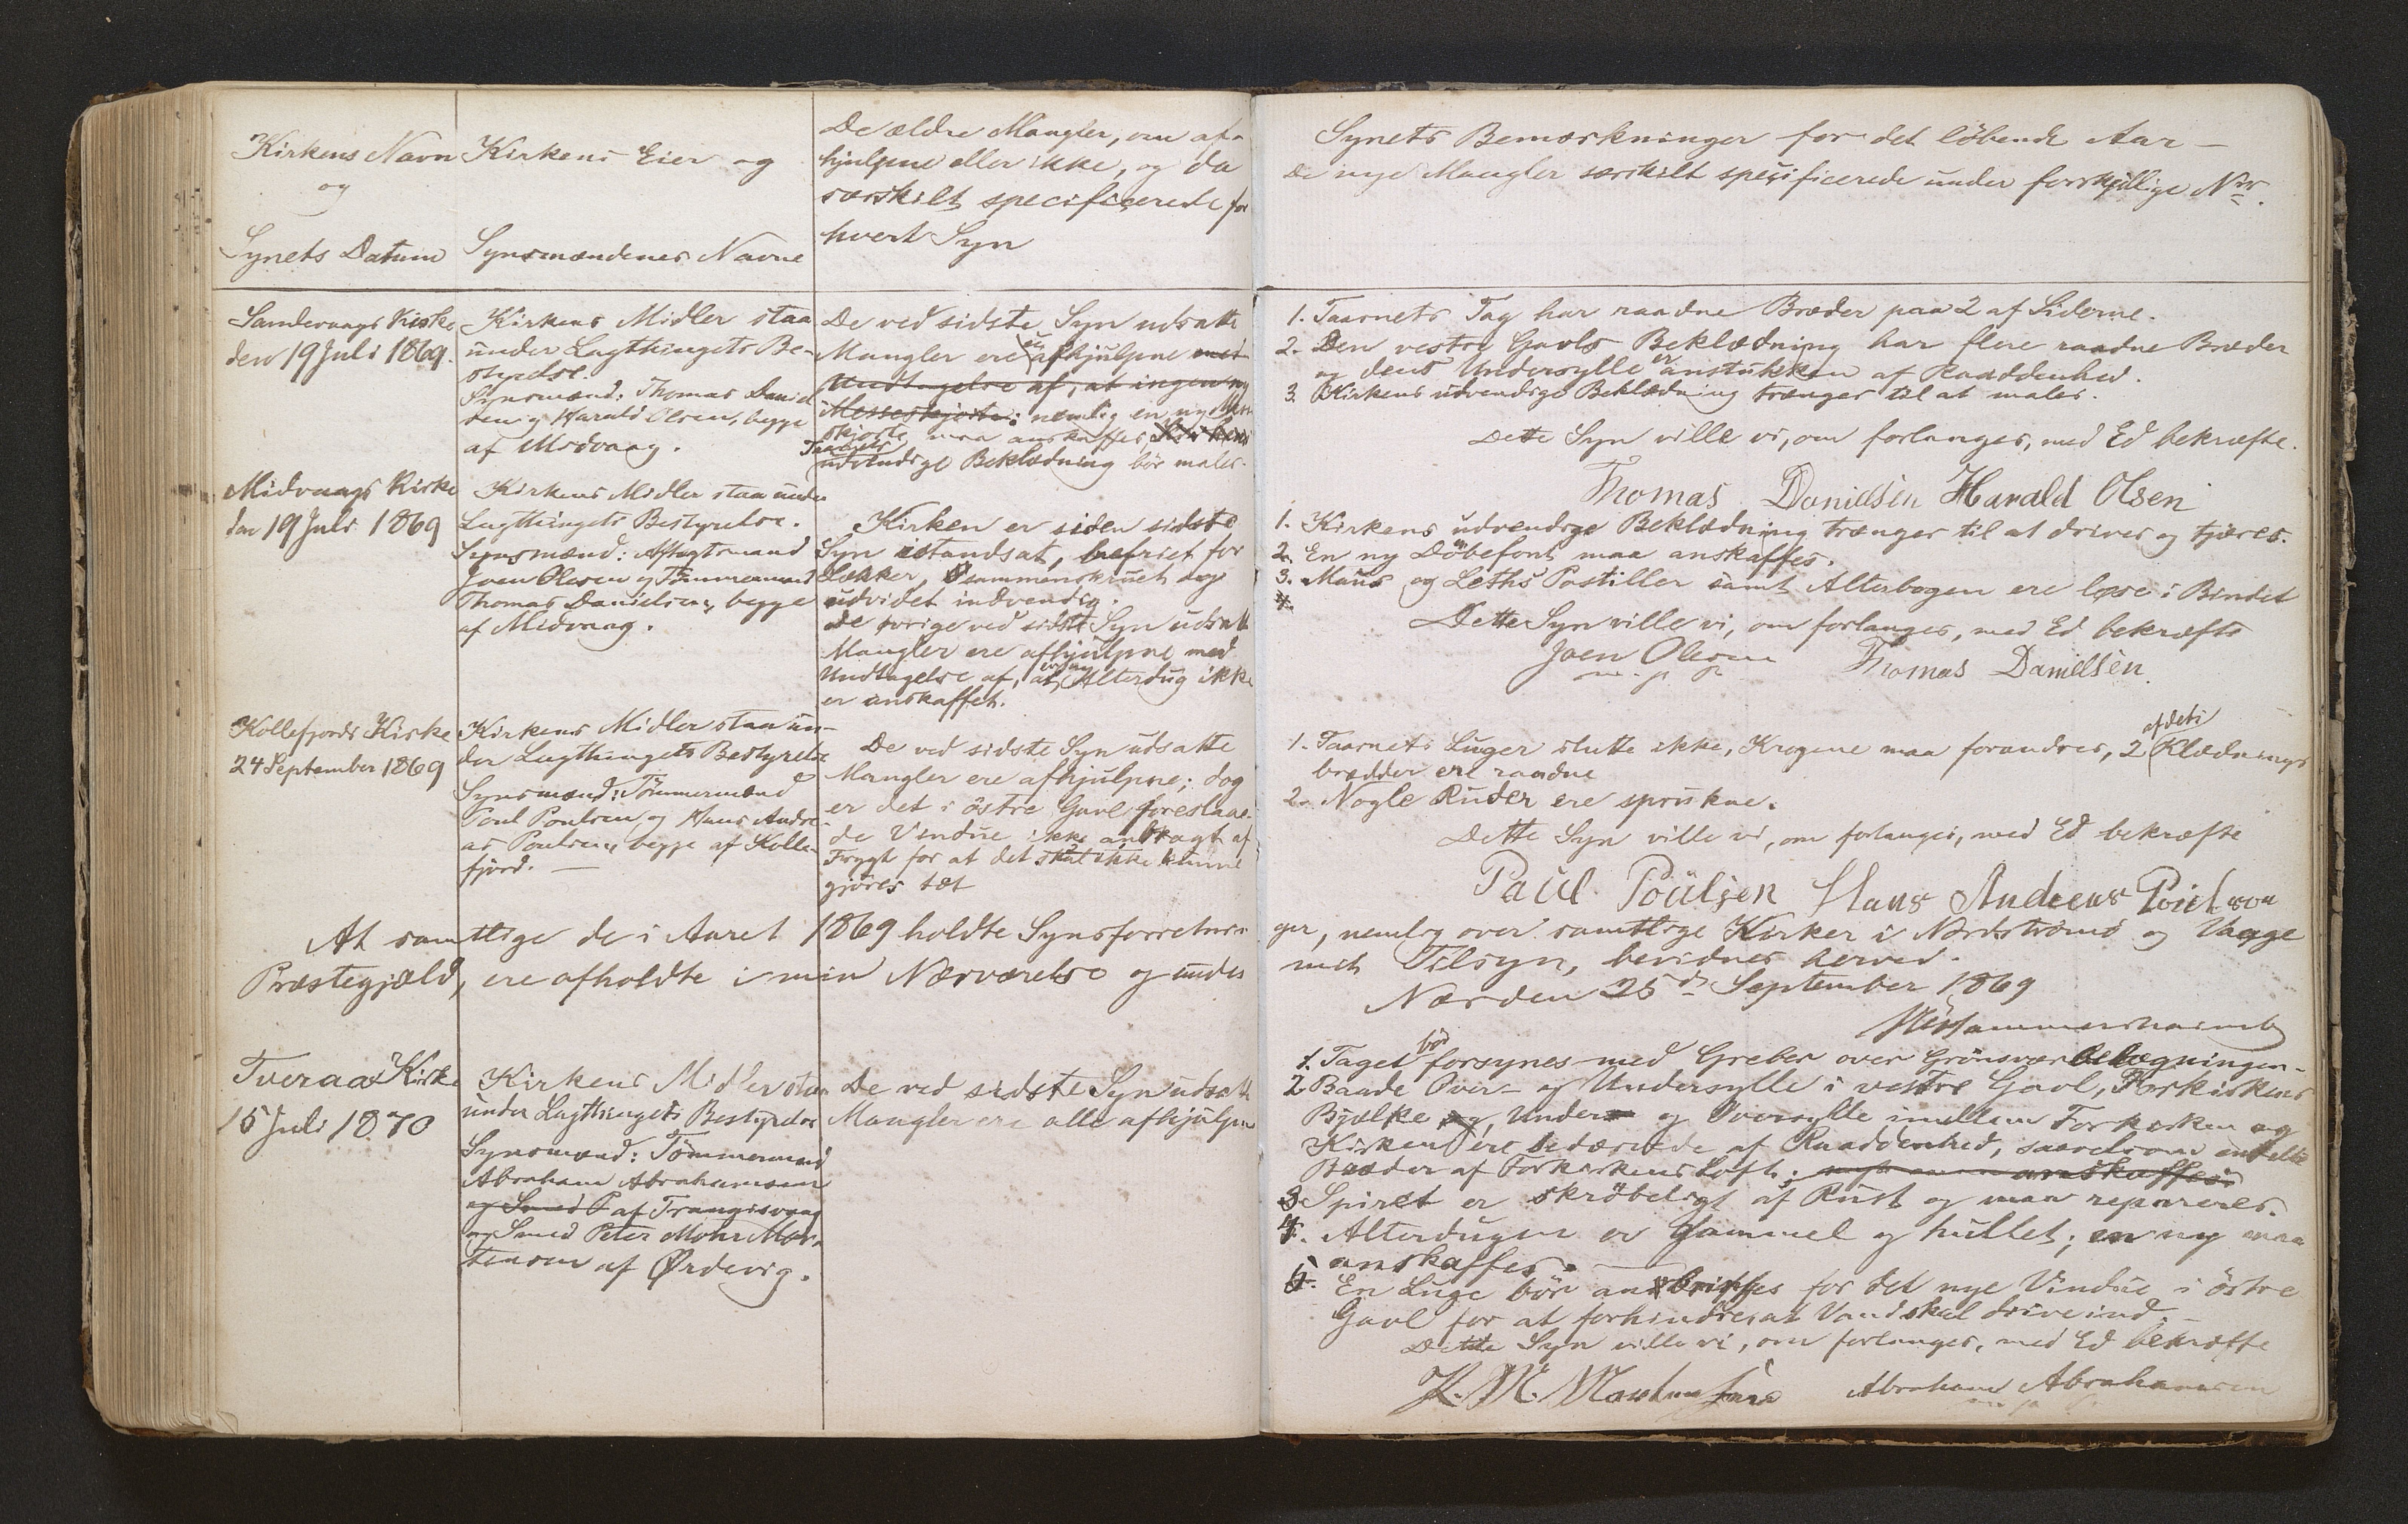 Kirkens Navn
og
Synets Datum
Kirkens Eier og
Synsmændenes Navne
De ældre Mangler, om af-
hjulpne eller ikke, og da
særskilt specificerede for
hvert Syn
Synets Bemærkninger for det löbende Aar –
De nye Mangler særskilt specificerede under forskjellige Nr.
Sandevaags Kirke
den 19 Juli 1869.
Kirkens Midler staa
under Lagthingets Be-
styrelse.
Synsmænd: Thomas Daniel
sen og Harald Olsen, begge
af Midvaag.
De ved sidste Syn udsatte
Mangler ere afhjulpne med
Undtagelse af, at ingen ny
Messeskjorte: nemlig en ny Messe
skjorte maa anskaffes Kirkens
Taarnets
udvendige Beklædning bör males.
1. Taarnets Tag har raadne Bræder paa 2 af Siderne.
2. Den vestre Gavls Beklædning har flere raadne Bræder
og dens Undersylle er anstukken af Raaddenhed.
3. Kirkens udvendige Beklædning trænger til at males.
Dette Syn ville vi, om forlanges, med Ed bekræfte.
Thomas Danielsen Harald Olsen
Midvaags Kirke
den 19 Juli 1869
Kirkens Midler staa under
Lagthingets Bestyrelse.
Synsmænd: Aftagtsmand
Joen Olesen og Tömmermand
Thomas Danielsen, begge
af Midvaag.
Kirken er siden sidste
Syn istandsat, befriet for
Lækker, sammenskruet og
udvidet indvendig.
De övrige ved sidste Syn udsatte
Mangler ere afhjulpne med
Undtagelse af, at en ny Alterdug ikke
er anskaffet.
1. Kirkens udvendige Beklædning trænger til at drives og tjæres.
2. En ny Döbefont maa anskaffes.
3. Maus og Leths Postiller samt Alterbogen ere löse i Bindet
4.
Dette Syn ville vi, om forlanges, med Ed bekræfte
Joen Olesen Thomas Danielsen
m. p. P.
Kollefjords Kirke
24 September 1869
Kirkens Midler staa un-
der Lagthingets Bestyrelse
Synsmænd: Tömmermænd
Poul Poulsen og Hans Andre-
as Poulsen, begge af Kolle-
fjord. –
De ved sidste Syn udsatte
Mangler ere afhjulpne; dog
er det i östre Gavl foreslaae-
de Vindue ikke anbragt af
Frygt for at det skal ikke kunne
gjöres tæt
1. Taarnets Luger slutte ikke, Krogene maa forandres, 2 af dets Klædnings
brædder ere raadne
2. Nogle Ruder ere sprukne.
Dette Syn ville vi, om forlanges, med Ed bekræfte
Paul Poulsen Hans Andreas Poulson
At samtlige de i Aaret 1869 holdte Synsforretnin-
ger, nemlig over samtlige Kirker i Nordströmö og Vaagö
Præstegjæld, ere afholdte i min Nærværelse og under
mit Tilsyn, bevidnes herved.
Næs den 25de September 1869
Hammershaimb
Tveraa Kirke
15 Juli 1870
Kirkens Midler staa
under Lagthingets Bestyrelse
Synsmænd: Tömmermand
Abraham Abrahamsen
og Smed P af Trangisvaag
og Smed Peter Mohr Mor-
tensen af Ørdevig.
De ved sidste Syn udsatte
Mangler ere alle afhjulpne
1. Taget bör forsynes med Greber over Grönsværbelægningen.
2 Baade Over- og Undersylle i vestre Gavl, Forkirkens
Bjælke og, Under og Oversylle imellem Forkirken og
Kirken ere bedærvede af Raaddenhed, saavelsom enkelte
Bræder af Forkirkens Loft; anskaffes.
3 Spiret er skröbeligt af Rust og maa repareres.
4. Alterdugen er gammel og hullet; en ny maa
anskaffes.
5. En Luge bör anbringes for det nye Vindue i östre
Gavl for at forhindre, at Vand skal drive ind. –
Dette Syn ville vi, om forlanges, med Ed bekræfte
P. M. Mortensen Abraham Abrahamsen